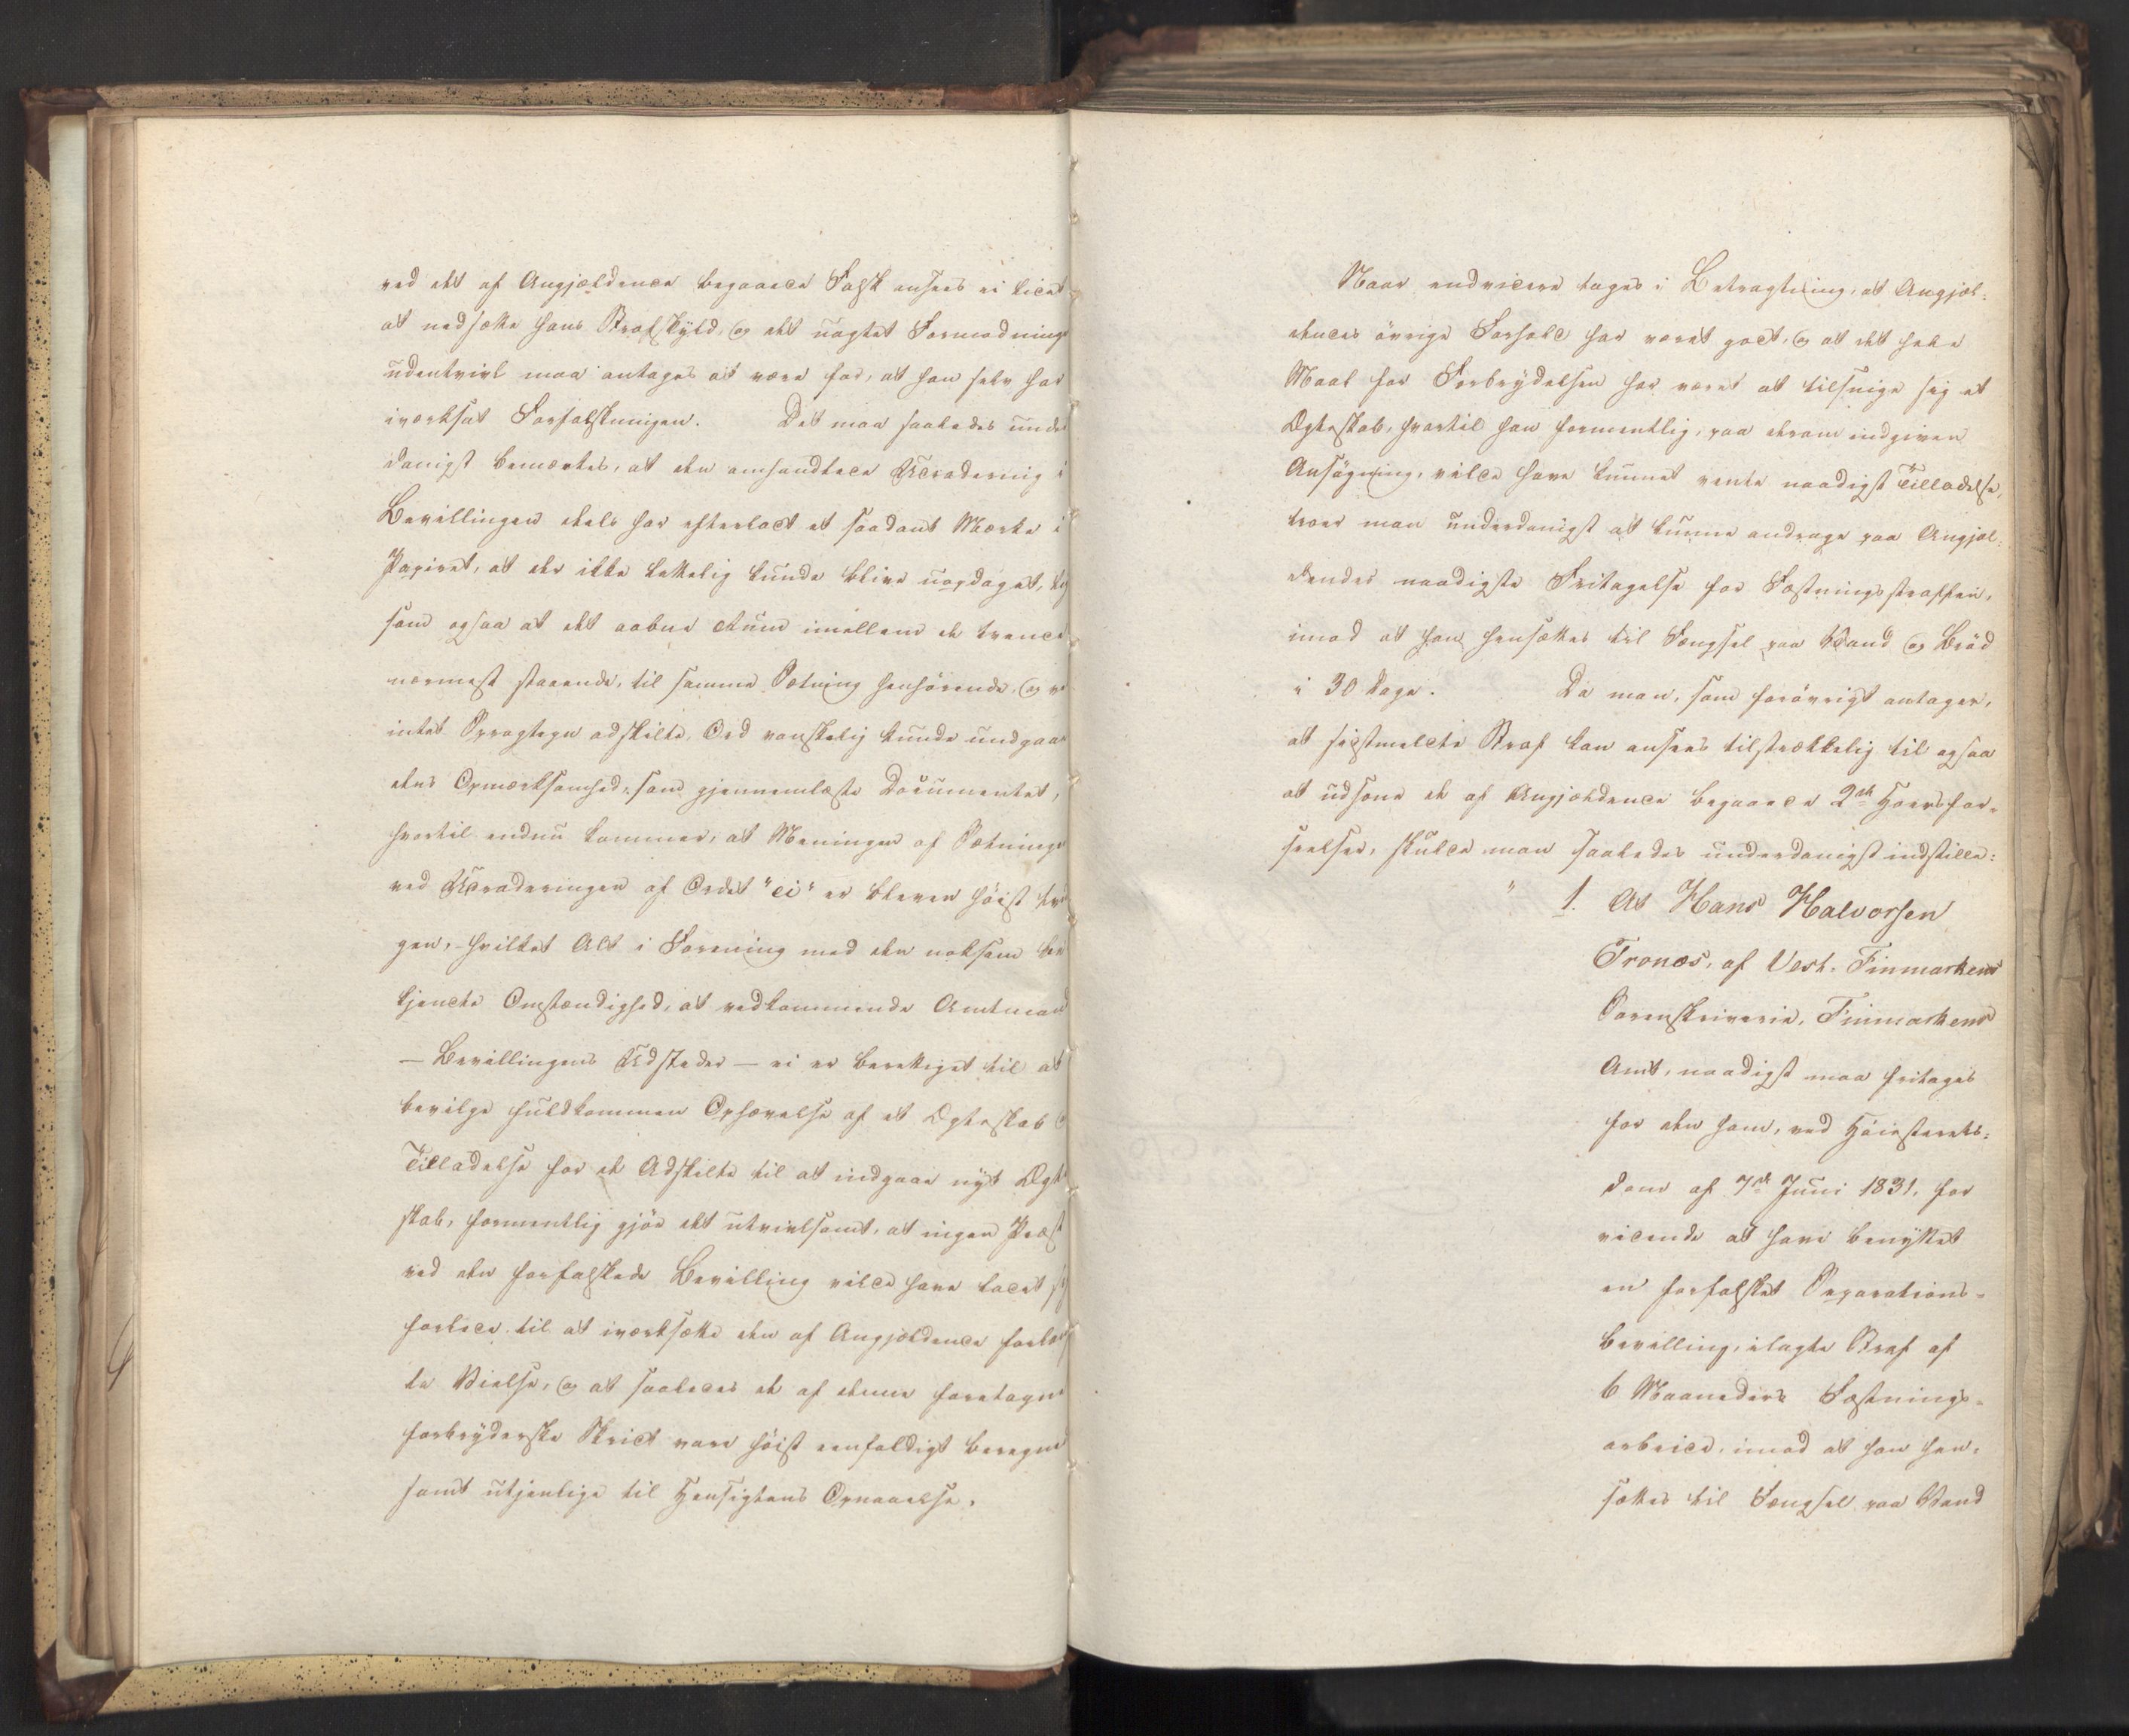 ved det af Angjældende begaaede Falsk ansees ei lidet
at nedsætte hans Strafskyld, og det uagtet Formodning
udentvivl maa antages at være for, at han selv har
iværksat Forfalskningen. Det maa saaledes under
danigst bemærkes, at den omhandlede Udradering i
Bevillingen deels har efterladt et saadant Mærke i
Papiret, at der ikke lettelig kunde blive uopdaget, lige
som ogsaa at det aabne Rum imellem de tvende
nærmest staaende, til samme Sætning henhörende, og ved
intet Opragtegn adskilte, Ord vanskelig kunde undgaae
dens Opmærksomhed, som gjennemlæste Documentet,
hvortil endnu kommer, at Meningen af Sætningen
ved Udraderingen af Ordet "ei" er bleven höist tvun
gen, hvilket Alt i Forening med den noksom be
kjendte Omstændighed, at vedkommende Amtmand
– Bevillingens Udsteder – ei er berettiget til at
bevilge fuldkommen Ophævelse af et Ægteskab
Tilladelse for de Adskilte til at indgaae nyt Ægte
skab, formentlig gjör det utvivlsomt, at ingen Præst
ved den forfalskede Bevilling vilde have ladet sig
forlede til at iværksætte den af Angjældende forlang
te Vielse, og at saaledes de af denne foretagne
forbryderske Skridt vare höist eenfoldigt beregnede
samt utjenlige til Hensigtens Opnaaelse.
Naar endvidere tages i Betragtning, at Angjæl-
dendes övrige Forhold har været godt, og at det hele
Maal for Forbrydelsen har været at tilsnige sig et
Ægteskab, hvortil han formentlig, paa derom indgiven
Ansögning, vilde have kunnet vente naadigst Tilladelse,
troer man underdanigst at kunne andrage paa Angjæl-
dendes naadigste Fritagelse for Fæstningsstraffen,
imod at han hensættes til Fængsel paa Vand og Bröd
i 30 Dage. Da man, som forövrigt antager,
at sidstmeldte Straf kan ansees tilstrækkelig til ogsaa
at udsone de af Angjældende begaaede 2de Hoersfor-
seelser, skulde man saaledes underdanigst indstille:
" 1. At Hans Halvorsen
Tronæs, af Vest-Finmarkens
Sorenskriverie, Finmarkens
Amt, naadigst maa fritages
for den ham, ved Höiesterets-
dom af 7de Juni 1831, for
vidende at have benyttet
en forfalsket Separations-
bevilling, ilagte Straf af
6 Maaneders Fæstnings-
arbeide, imod at han hen-
sættes til Fængsel paa Vand